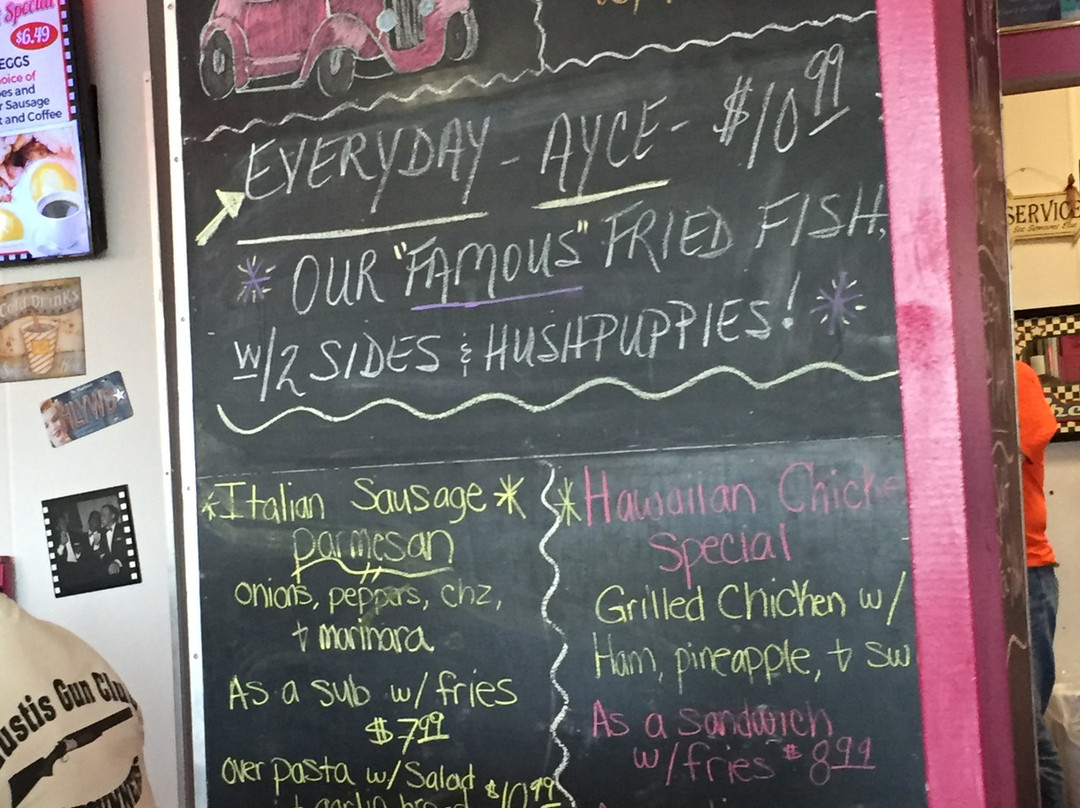 Special
$6.49
EGGS
hoice of
es and
r Sausage
t and Coffee
Cold Drinks
EVERYDAY - AYCE - $10.99
* OUR "FAMOUS" FRIED FISH,
w/2 SIDES & HUSHPUPPIES! *
*Italian Sausage*
parmesan
onions, peppers, chz,
+ marinara
As a sub w/ fries
$7.99
over pasta w/ Salad $10.99
+ garlic bread
*Hawaiian Chicke
Special
Grilled Chicken w/
Ham, pineapple, + sw
As a sandwich
w/fries $8.99
SERVICE
See Someone Else
ustis Gun Clu